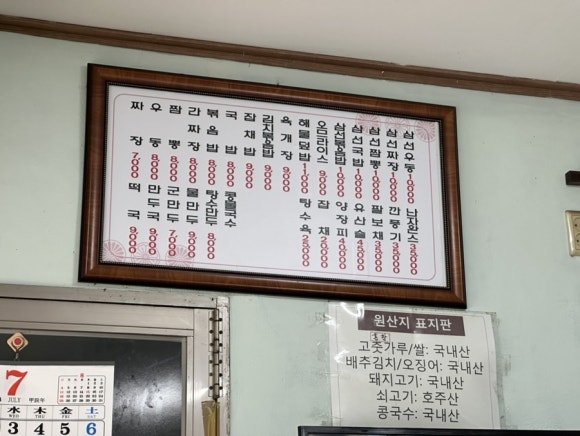 짜장 7,000
우동 8,000
짬뽕 8,000
간짜장 8,000
볶음밥 8,000
국밥 8,000
잡채밥 9,000
김치볶음밥 9,000
육개장 9,000
해물덮밥 11,000
오므라이스 9,000
삼선볶음밥 10,000
삼선국밥 10,000
삼선짬뽕 10,000
삼선짜장 10,000
삼선우동 10,000
떡국 9,000
만두국 9,000
군만두 7,000
물만두
탕수만두
콩물국수
탕수육 25,000
잡채 25,000
양장피 40,000
유산슬 45,000
팔보채
깐풍기
난자완스
원산지 표지판
고춧가루/쌀: 국내산
배추김치/오징어: 국내산
돼지고기: 국내산
쇠고기: 호주산
콩국수: 국내산
7 JULY 甲辰年
水 木 金 土
WED THU FRI SAT
3 4 5 6